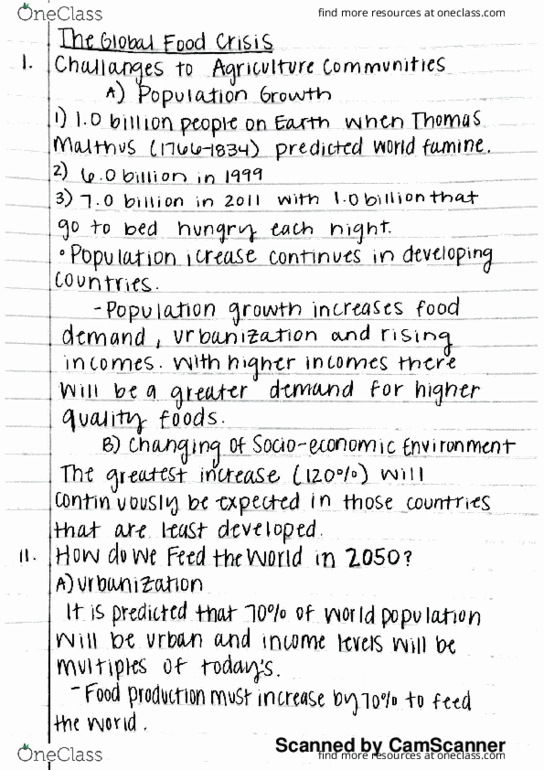 OneClass
find more resources at oneclass.com
The Global Food Crisis
I. Challanges to Agriculture Communities
A) Population Growth
1) 1.0 billion people on Earth when Thomas
Malthus (1766-1834) predicted world famine.
2) 6.0 billion in 1999
3) 7.0 billion in 2011 with 1.0 billion that
go to bed hungry each night.
• Population icrease continues in developing
countries.
- Population growth increases food
demand, urbanization and rising
incomes. With higher incomes there
will be a greater demand for higher
quality foods.
B) Changing of Socio-economic Environment
The greatest increase (120%) will
continuously be expected in those countries
that are least developed.
II. How do We Feed the World in 2050?
A) Urbanization
It is predicted that 70% of world population
will be urban and income levels will be
multiples of today's.
- Food production must increase by 70% to feed
the world.
Scanned by CamScanner
OneClass
find more resources at oneclass.com